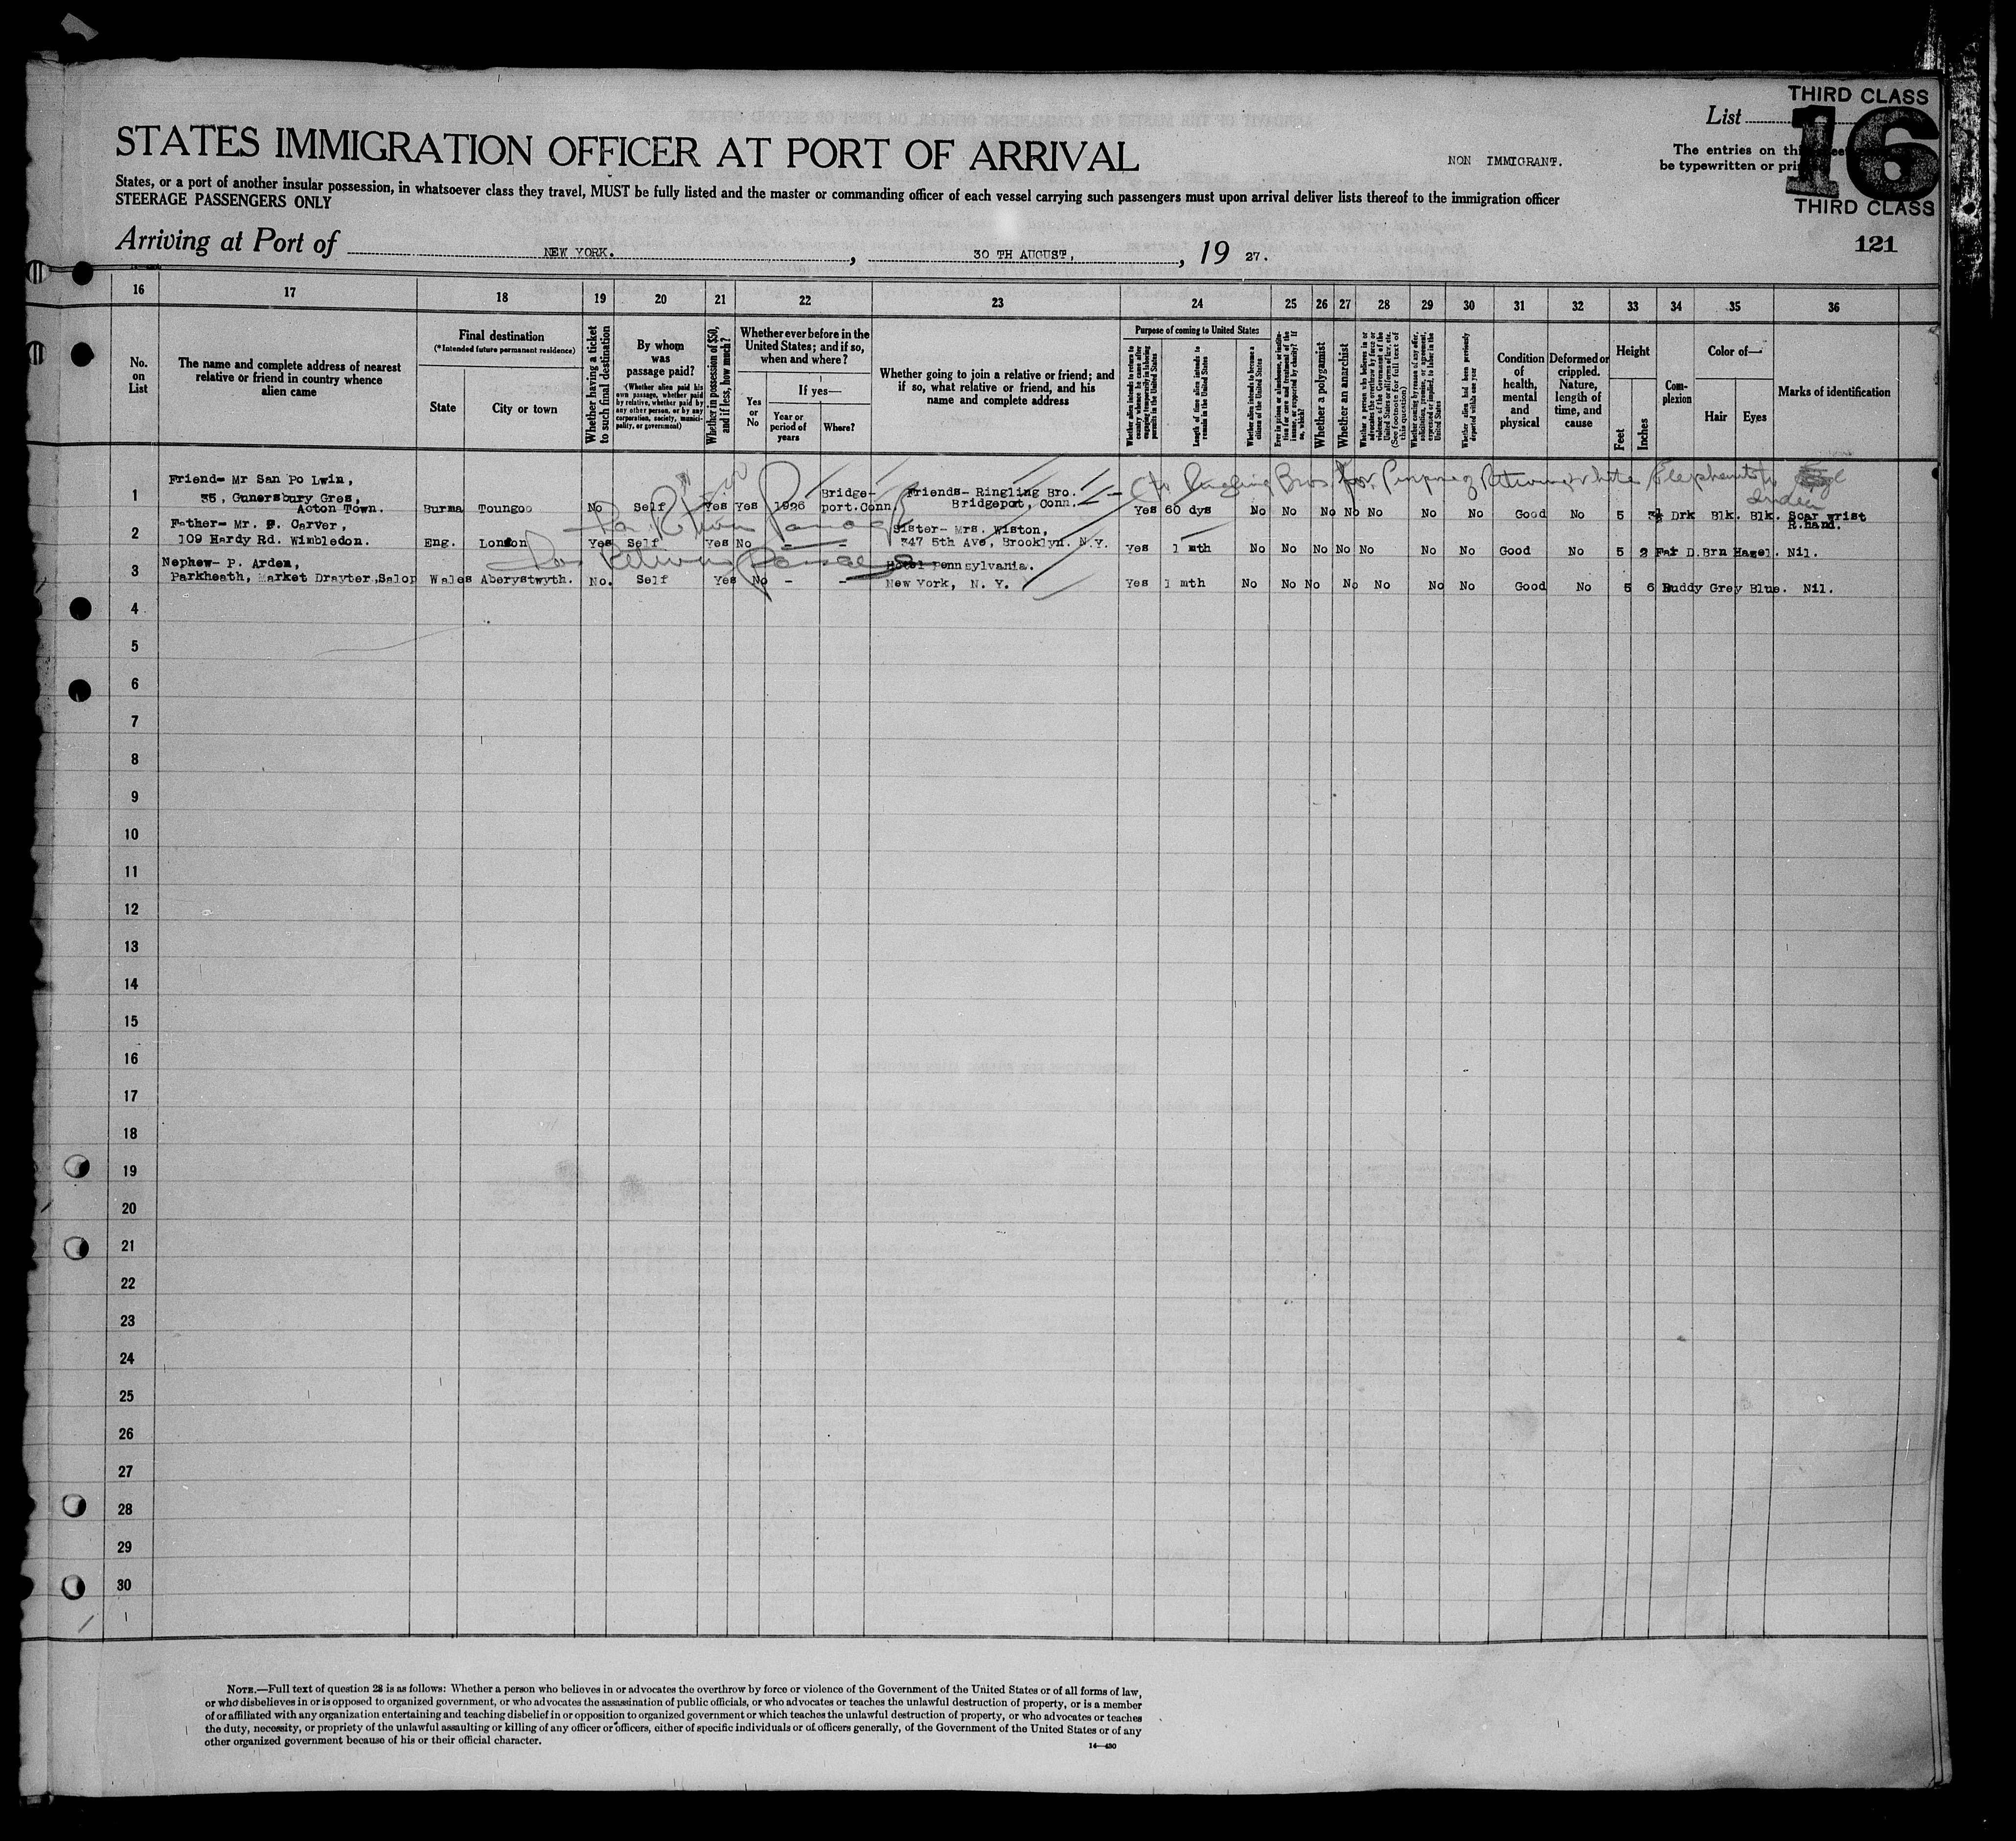 THIRD CLASS
List
16
The entries on this
be typewritten or pri
THIRD CLASS
121
STATES IMMIGRATION OFFICER AT PORT OF ARRIVAL
NON IMMIGRANT.
States, or a port of another insular possession, in whatsoever class they travel, MUST be fully listed and the master or commanding officer of each vessel carrying such passengers must upon arrival deliver lists thereof to the immigration officer
STEERAGE PASSENGERS ONLY
Arriving at Port of NEW YORK. , 30 TH AUGUST, , 19 27.
16 17 18 19 20 21 22 23 24 25 26 27 28 29 30 31 32 33 34 35 36
No. on List
The name and complete address of nearest relative or friend in country whence alien came
Final destination
(*Intended future permanent residence)
State
City or town
Whether having a ticket to such final destination
By whom was passage paid?
(Whether alien paid his own passage, whether paid by relative, whether paid by any other person, or by any corporation, society, municipality, or government)
Whether in possession of $50, and if less, how much?
Whether ever before in the United States; and if so, when and where?
Yes or No
If yes—
Year or period of years
Where?
Whether going to join a relative or friend; and if so, what relative or friend, and his name and complete address
Purpose of coming to United States
Whether alien intends to return to country whence he came after engaging temporarily in laboring pursuits in the United States
Length of time alien intends to remain in the United States
Whether alien intends to become a citizen of the United States
Ever in prison or almshouse, or institution for care and treatment of the insane, or supported by charity? If so, which?
Whether a polygamist
Whether an anarchist
Whether a person who believes in or advocates the overthrow by force or violence of the Government of the United States or all forms of law, etc. (See footnote for full text of this question)
Whether coming by reason of any offer, solicitation, promise, or agreement, expressed or implied, to labor in the United States
Whether alien had been previously deported within one year
Condition of health, mental and physical
Deformed or crippled. Nature, length of time, and cause
Height
Feet
Inches
Complexion
Color of—
Hair
Eyes
Marks of identification
c/o Ringling Bros for Purpose of Returning white Elephants to
India
1 Friend- Mr San Po Lwin,
35, Gunersbury Cres,
Acton Town. Burma Toungoo No Self Yes Yes 1926 Bridge-
port.Conn. Friends- Ringling Bro.
Bridgeport, Conn. Yes 60 dys No No No No No No No Good No 5 Drk Blk. Blk. Scar wrist
R.hand.
2 Father- Mr. F. Carver,
109 Hardy Rd. Wimbledon. Eng. London Yes Self Yes No - - Sister- Mrs. Wiston,
347 5th Ave, Brooklyn. N.Y. Yes 1 mth No No No No No No No Good No 5 2 Fair D.Brn Hazel. Nil.
3 Nephew- P. Arden,
Parkheath, Market Drayter,Salop Wales Aberystwyth. No. Self Yes No - - Hotel Pennsylvania.
New York, N. Y. Yes 1 mth No No No No No No No Good No 5 6 Ruddy Grey Blue. Nil.
4
5
6
7
8
9
10
11
12
13
14
15
16
17
18
19
20
21
22
23
24
25
26
27
28
29
30
NOTE.—Full text of question 28 is as follows: Whether a person who believes in or advocates the overthrow by force or violence of the Government of the United States or of all forms of law,
or who disbelieves in or is opposed to organized government, or who advocates the assassination of public officials, or who advocates or teaches the unlawful destruction of property, or is a member
of or affiliated with any organization entertaining and teaching disbelief in or opposition to organized government or which teaches the unlawful destruction of property, or who advocates or teaches
the duty, necessity, or propriety of the unlawful assaulting or killing of any officer or officers, either of specific individuals or of officers generally, of the Government of the United States or of any
other organized government because of his or their official character.
14—430